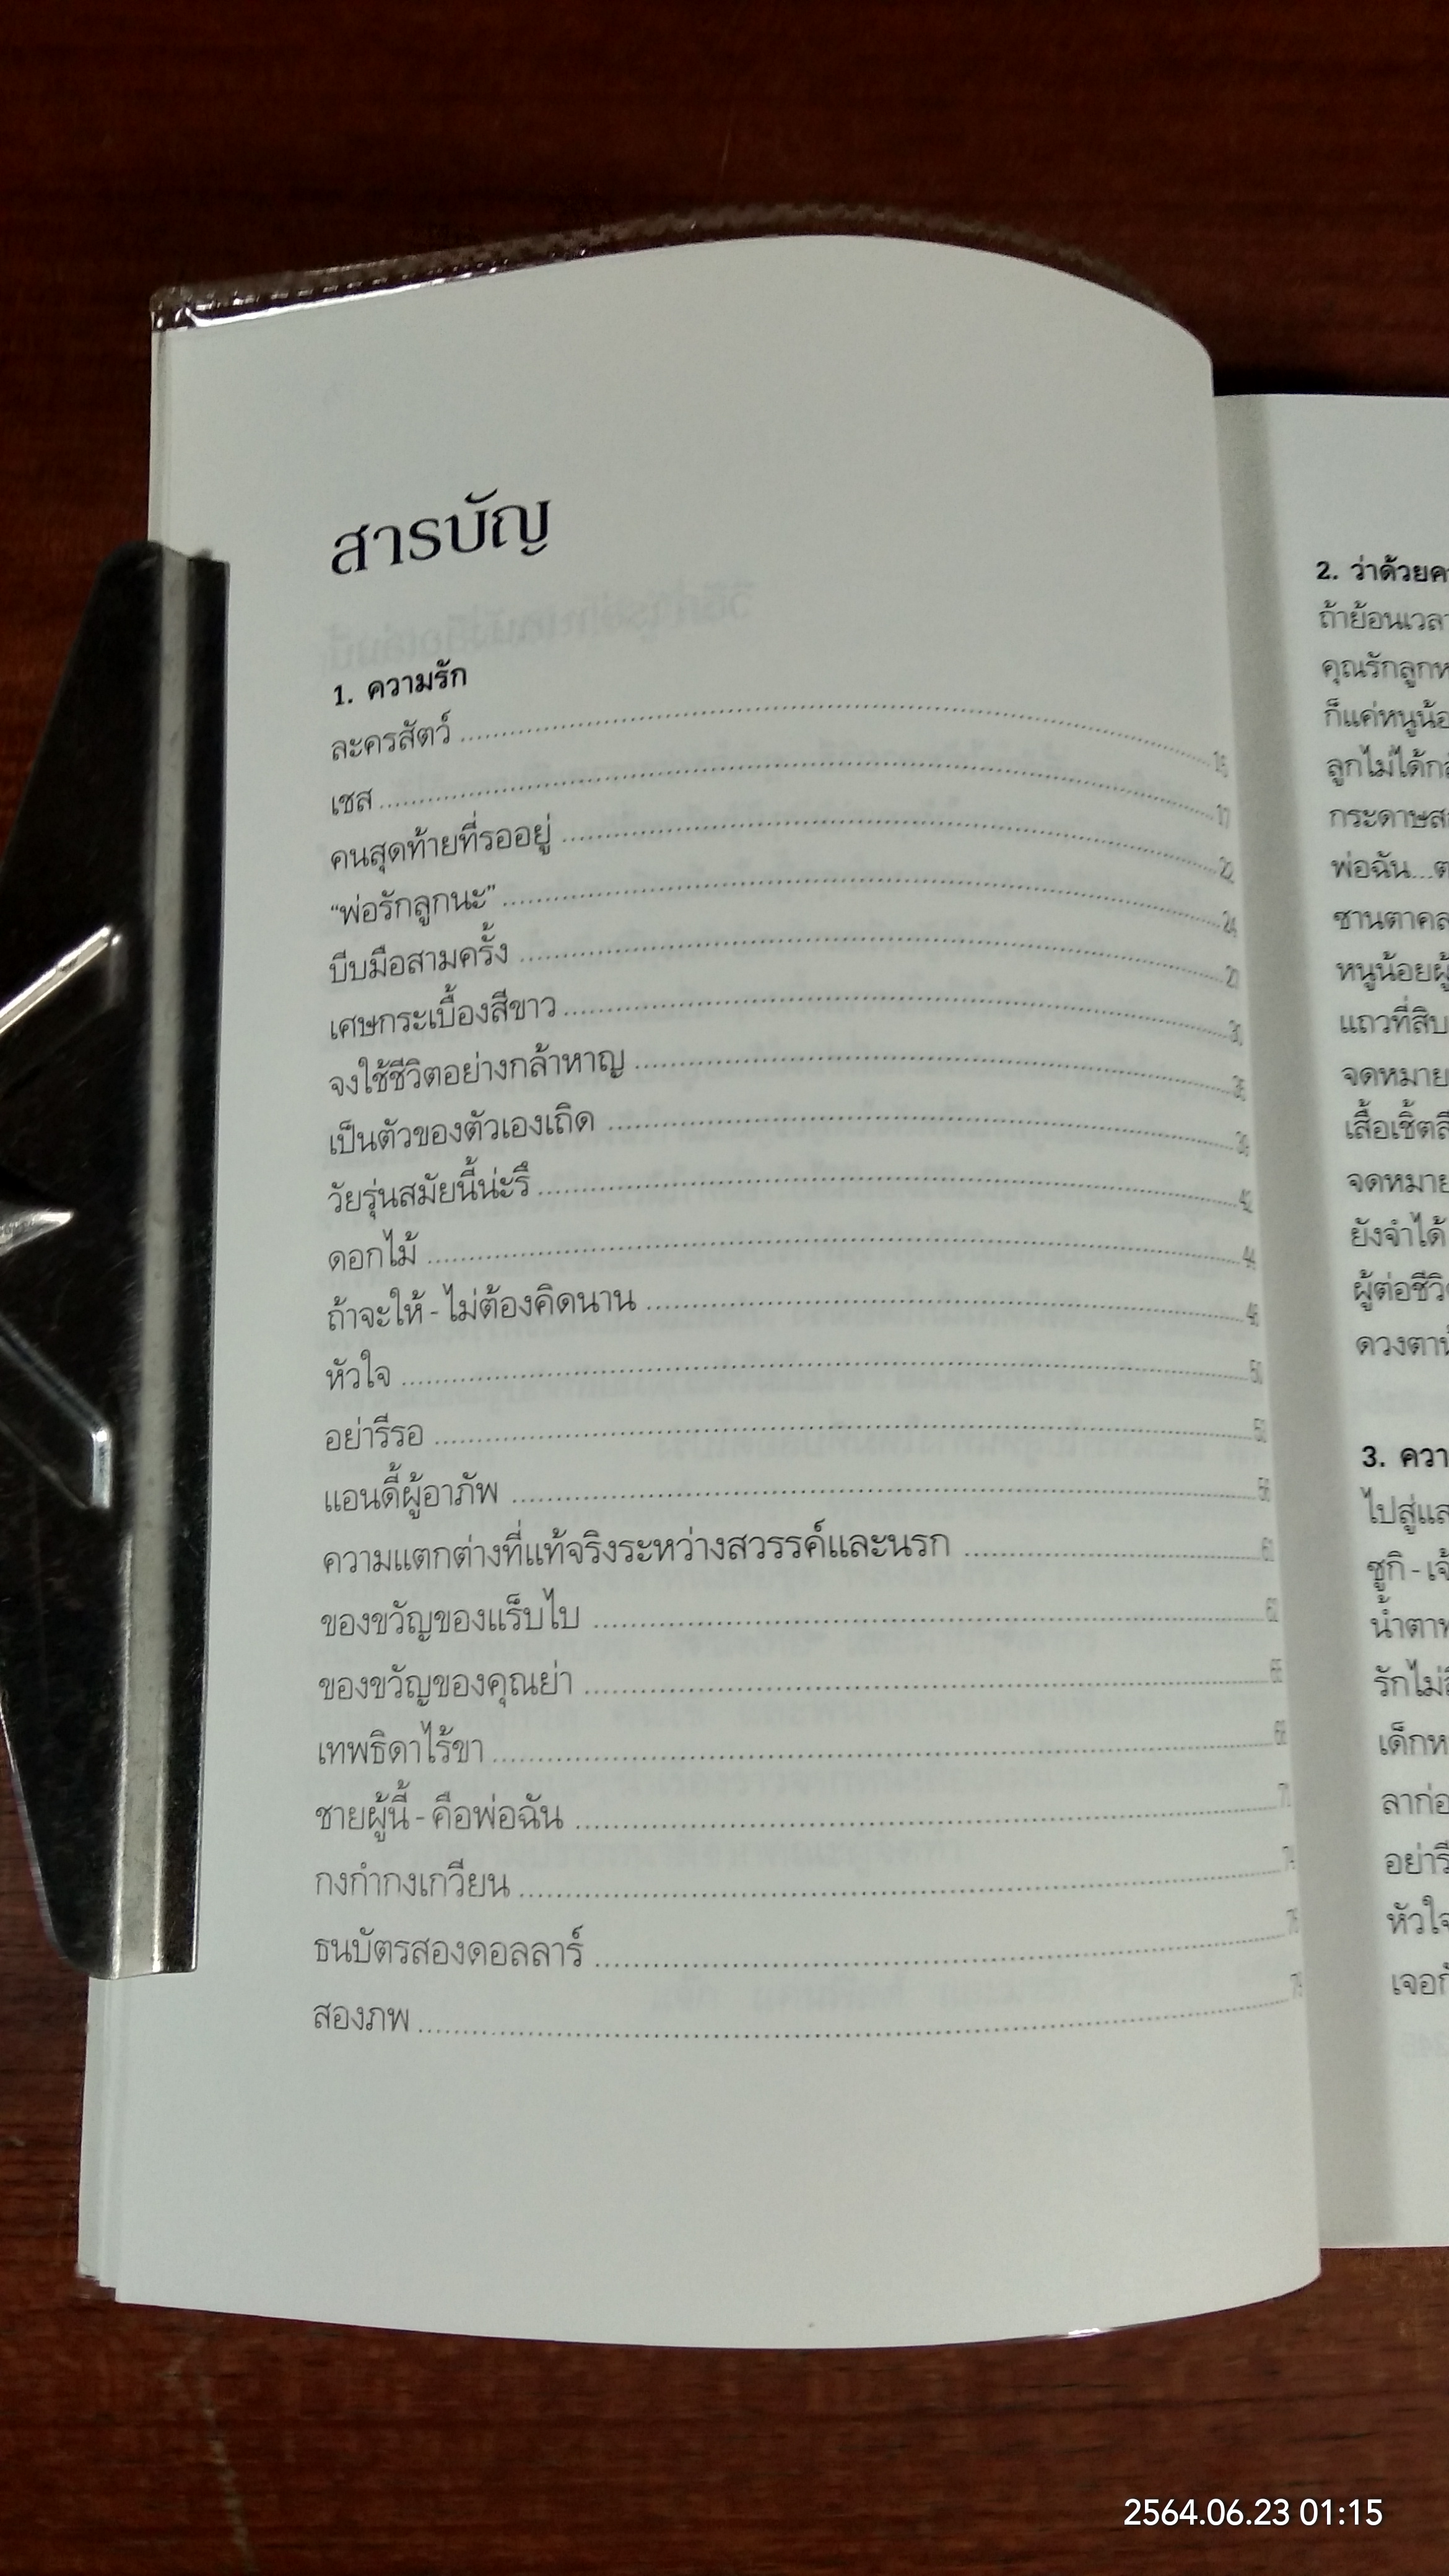 สารบัญ
1. ความรัก
ละครสัตว์
เชส 17
คนสุดท้ายที่รออยู่ 22
“พ่อรักลูกนะ” 24
บีบมือสามครั้ง
เศษกระเบื้องสีขาว
จงใช้ชีวิตอย่างกล้าหาญ
เป็นตัวของตัวเองเถิด
วัยรุ่นสมัยนี้น่ะรึ 42
ดอกไม้ 44
ถ้าจะให้ - ไม่ต้องคิดนาน
หัวใจ 50
อย่ารีรอ
แอนดี้ผู้อาภัพ
ความแตกต่างที่แท้จริงระหว่างสวรรค์และนรก
ของขวัญของแร็บไบ
ของขวัญของคุณย่า
เทพธิดาไร้ขา
ชายผู้นี้ - คือพ่อฉัน
กงกำกงเกวียน
ธนบัตรสองดอลลาร์
สองภพ
2. ว่าด้วย
ถ้าย้อนเวลา
คุณรักลูก
ก็แค่หนูน้อ
ลูกไม่ได้
กระดาษ
พ่อฉัน...
ซานตาคล
หนูน้อยผู้
แถวที่สิบ
จดหมาย
เสื้อเชิ้ต
จดหมาย
ยังจำได้
ผู้ต่อชีวิ
ดวงตา
3. ควา
ไปสู่แส
ซูกิ - เจ้
น้ำตา
รักไม่
เด็กห
ลาก่อ
อย่ารี
หัวใจ
เจอก
2564.06.23 01:15